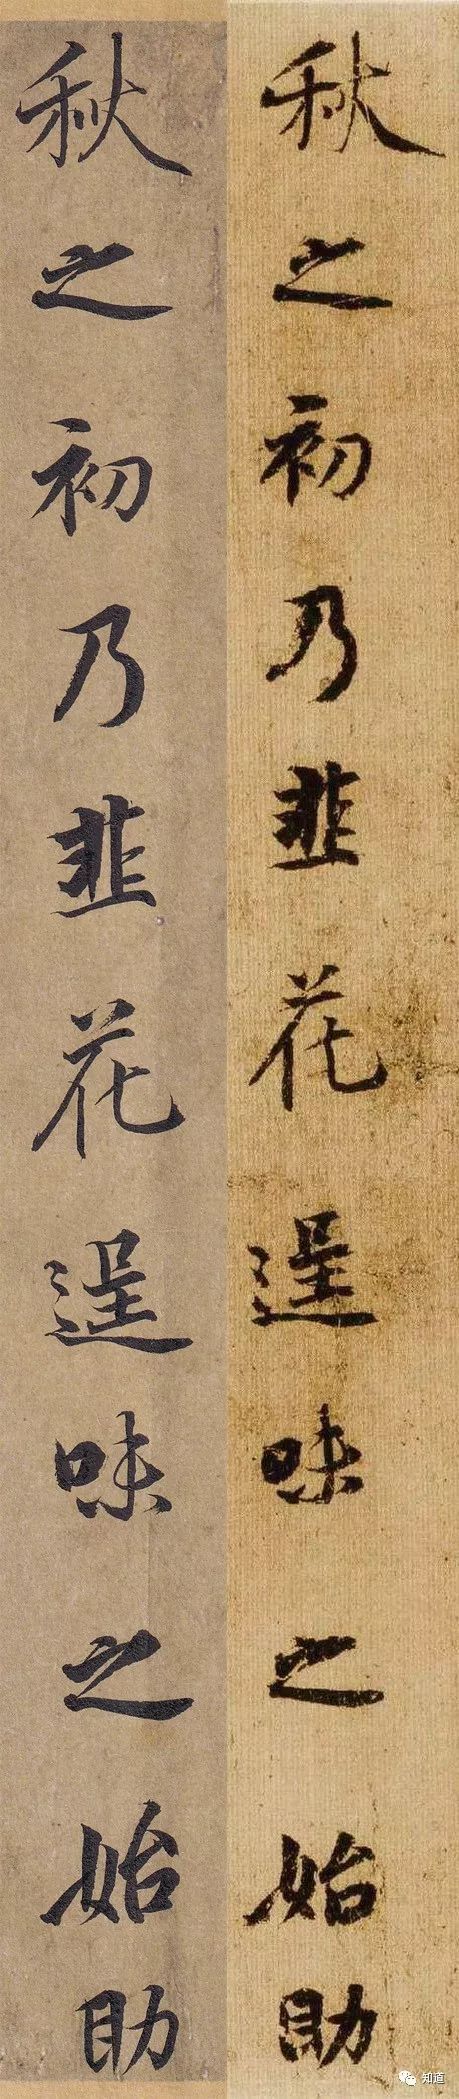 秋之初乃韭花逞味之始助
秋之初乃韭花逞味之始助
知道